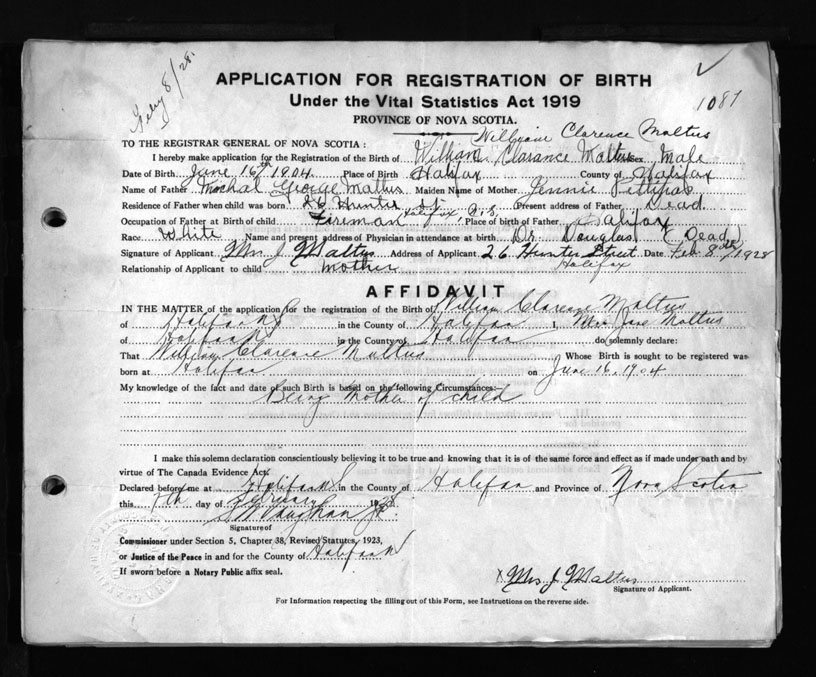 Feby 8/28.
APPLICATION FOR REGISTRATION OF BIRTH
Under the Vital Statistics Act 1919
1087
PROVINCE OF NOVA SCOTIA.
William Clarence Maltus
TO THE REGISTRAR GENERAL OF NOVA SCOTIA:
I hereby make application for the Registration of the Birth of William Clarance Maltus Sex Male
Date of Birth June 16th 1904 Place of Birth Halifax County of Halifax
Name of Father Michal George Maltus Maiden Name of Mother Jennie Pettipas
Residence of Father when child was born 26 Hunter St Halifax, N.S. Present address of Father Dead
Occupation of Father at Birth of child Fireman Place of birth of Father Halifax
Race White Name and present address of Physician in attendance at birth Dr Douglas (Dead)
Signature of Applicant Mrs J Maltus Address of Applicant 26 Hunter Street Halifax Date Feb 8th/1928
Relationship of Applicant to child mother
AFFIDAVIT
IN THE MATTER of the application for the registration of the Birth of William Clarence Maltus
of Halifax NS in the County of Halifax I, Mrs Jane Maltus
of Halifax NS in the County of Halifax do solemnly declare:
That William Clarence Maltus Whose Birth is sought to be registered was
born at Halifax on June 16, 1904
My knowledge of the fact and date of such Birth is based on the following Circumstances:
Being Mother of child
I make this solemn declaration conscientiously believing it to be true and knowing that it is of the same force and effect as if made under oath and by
virtue of The Canada Evidence Act.
Declared before me at Halifax NS in the County of Halifax and Province of Nova Scotia
this 7th day of February 1928
Vaughan Jr
Signature of
Commissioner under Section 5, Chapter 38, Revised Statutes, 1923,
or Justice of the Peace in and for the County of Halifax
If sworn before a Notary Public affix seal.
X Mrs J Maltus
Signature of Applicant.
For Information respecting the filling out of this Form, see Instructions on the reverse side.